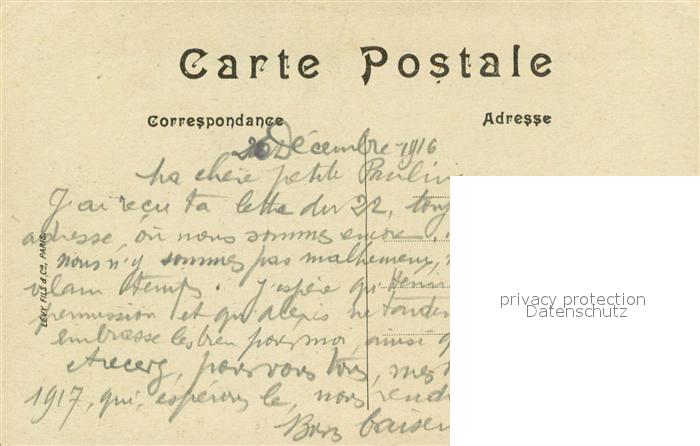 Carte Postale
Correspondance Adresse
26 Décembre 1916
Ma chère petite Pauline
J'ai reçu ta lettre du 22,
adresse, où nous sommes encore,
nous n'y sommes pas malheureux,
vilain temps. J'espère qu'Henri
permission et qu'alexis ne
embrasse les bien pour moi, ainsi
pour vous tous, mes
1917, qui, espérons le, nous
Bons baisers
LEVY FILS & Cie, PARIS
privacy protection
Datenschutz